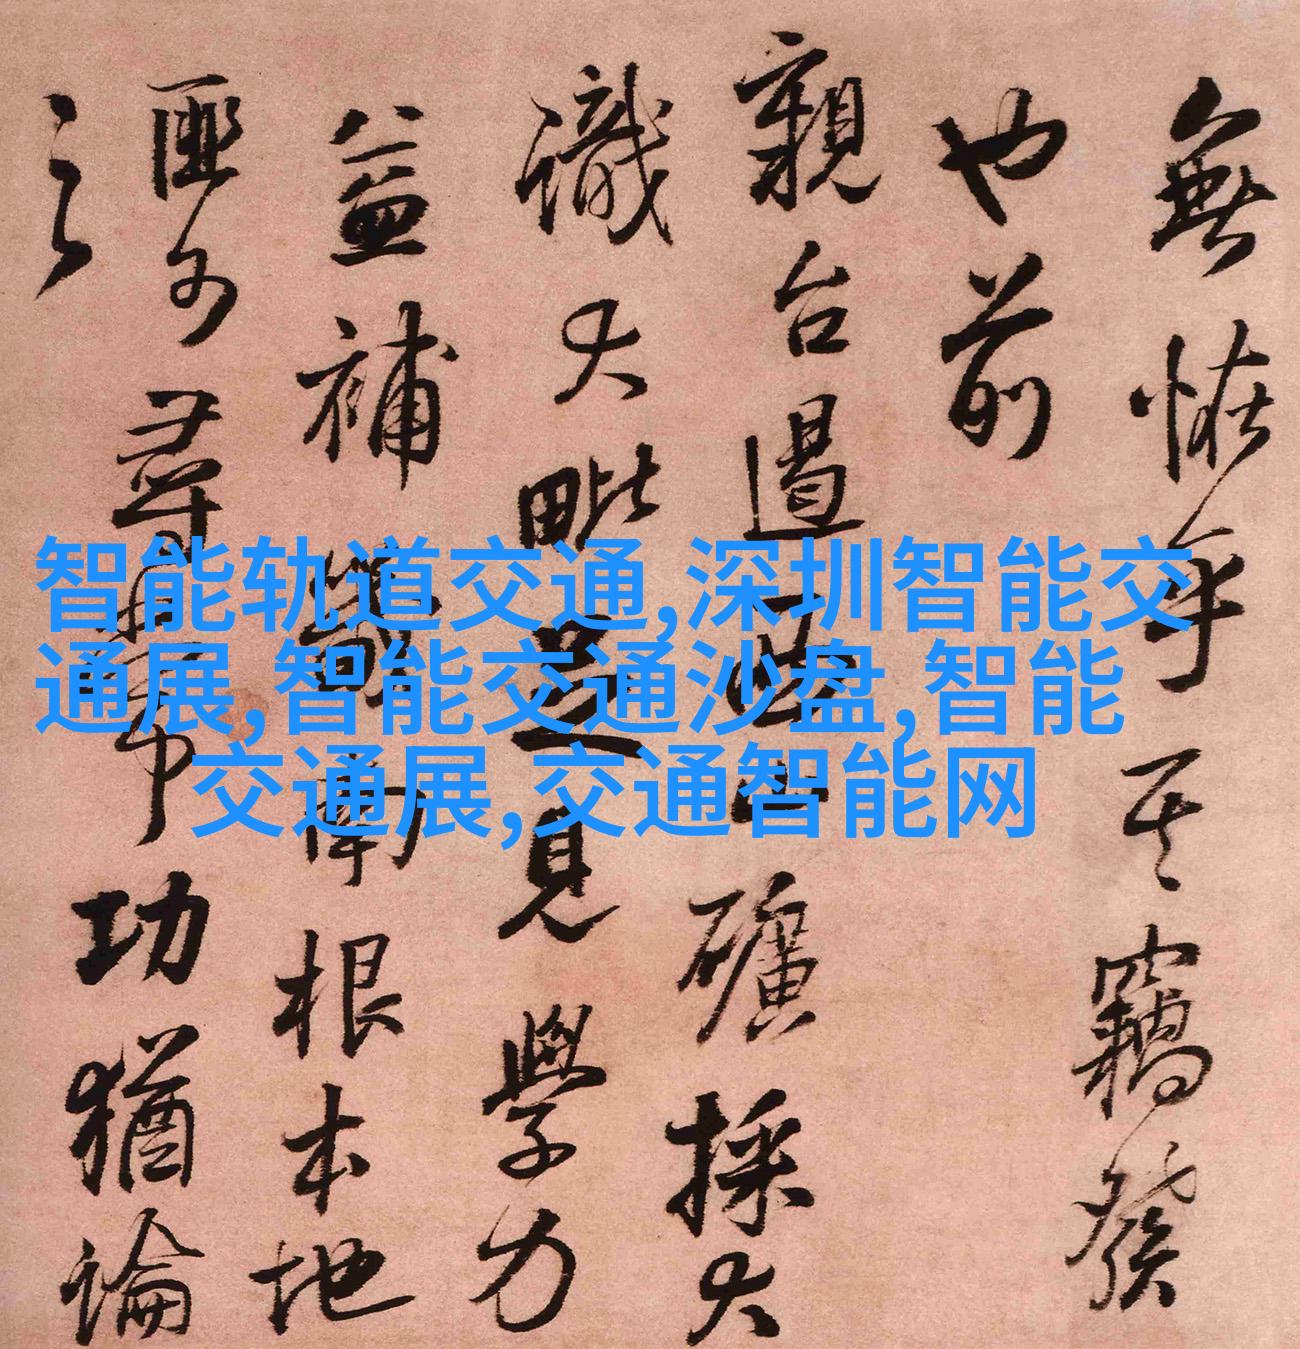 無恠乎其竊發
也前
親台礦採大
識大見學力
益補根本地
匪尋常功猶論
之
智能轨道交通,深圳智能交
通展,智能交通沙盘,智能
交通展,交通智能网